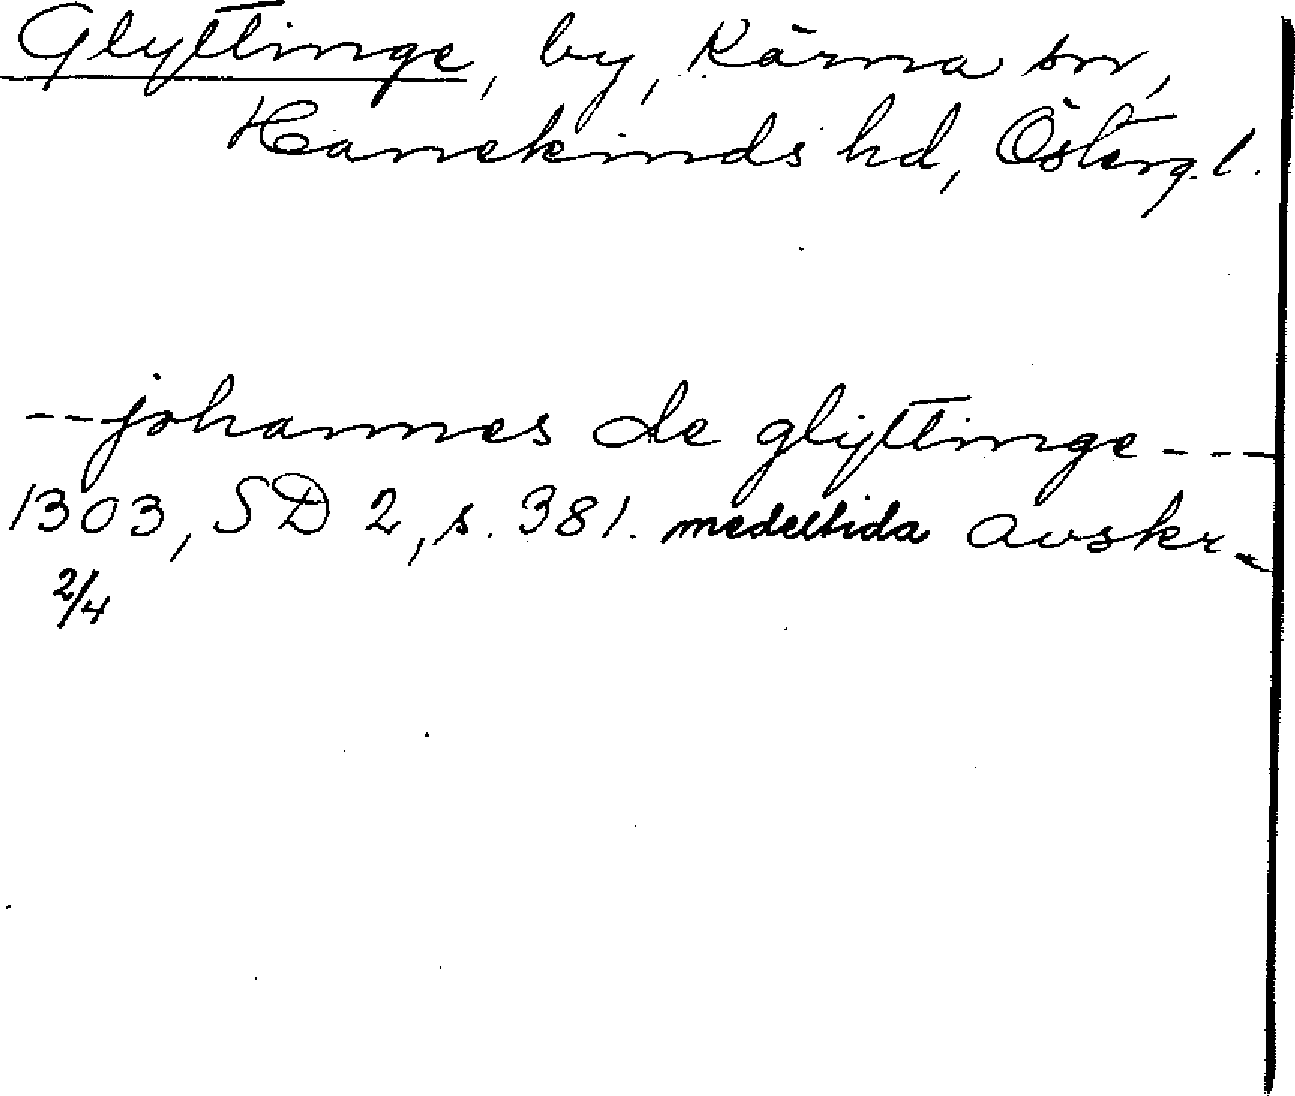 Glyttinge, by, Kärna sn,
Hanekinds hd, Österg. l.
-- johannes de glyttinge ---
1303, SD 2, s. 381. medeltida avskr.
2/4